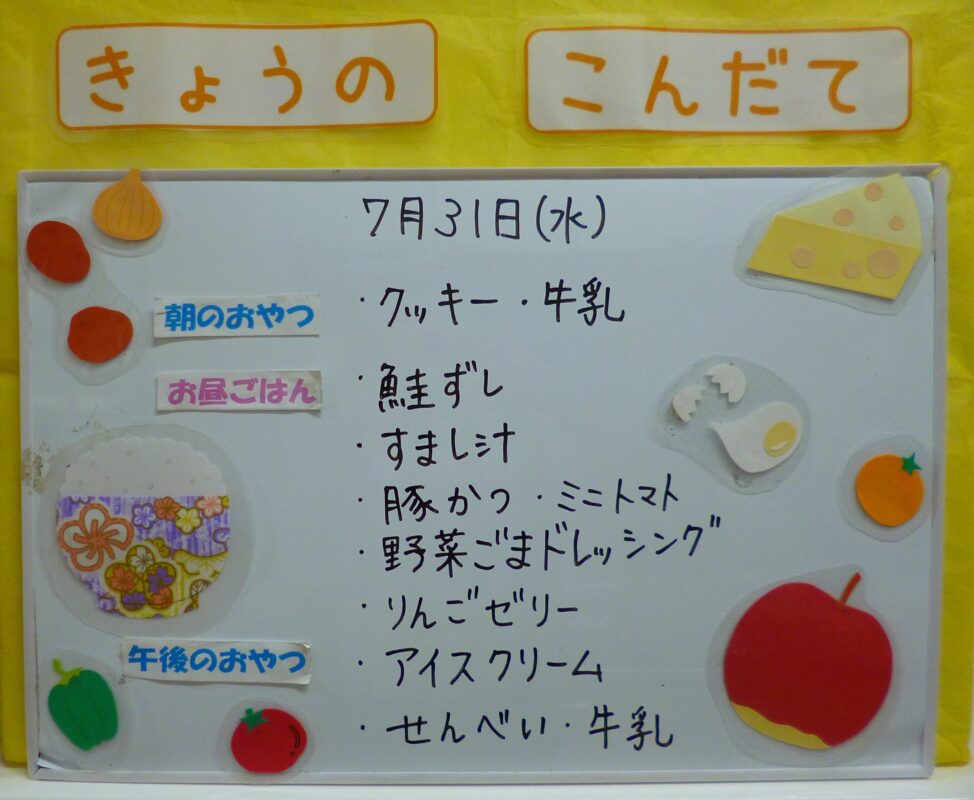 きょうの こんだて
7月31日(水)
朝のおやつ ・クッキー・牛乳
お昼ごはん ・鮭ずし
・すまし汁
・豚かつ・ミニトマト
・野菜ごまドレッシング
・りんごゼリー
午後のおやつ ・アイスクリーム
・せんべい・牛乳